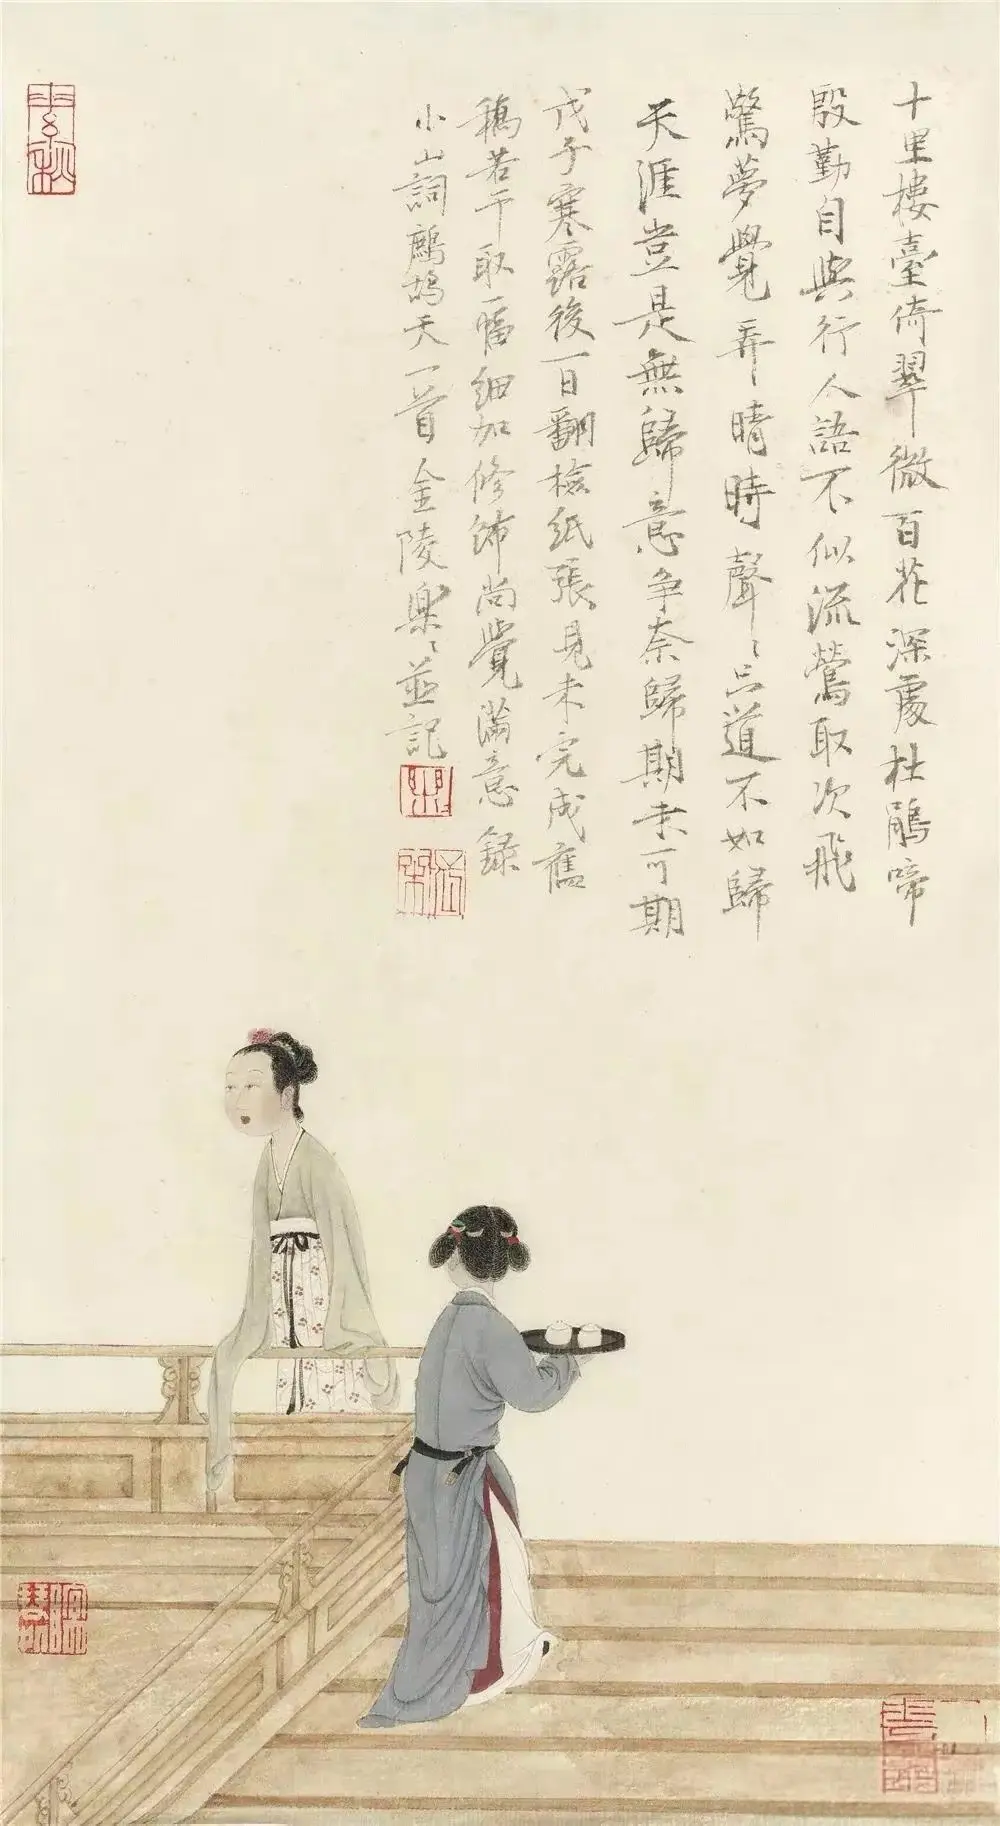 十里樓臺倚翠微百花深處杜鵑啼
殷勤自與行人語不似流鶯取次飛
驚夢覺弄晴時聲〻只道不如歸
天涯豈是無歸意爭奈歸期未可期
戊子寒露後一日翻檢紙張見未完成舊
稿若干取一幅細加修飾尚覺滿意錄
小山詞鷓鴣天一首金陵樂〻並記